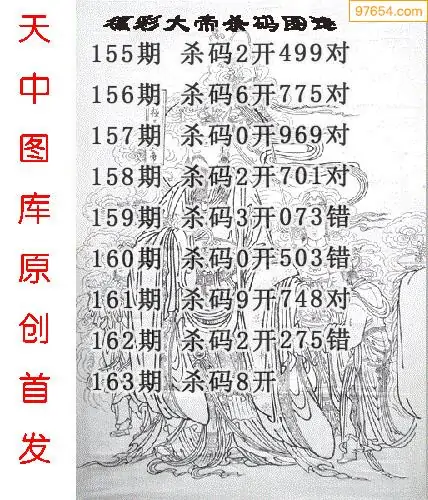 97654.com
福彩大帝杀码图迷
155期 杀码2开499对
156期 杀码6开775对
157期 杀码0开969对
158期 杀码2开701对
159期 杀码3开073错
160期 杀码0开503错
161期 杀码9开748对
162期 杀码2开275错
163期 杀码8开
天中图库原创首发